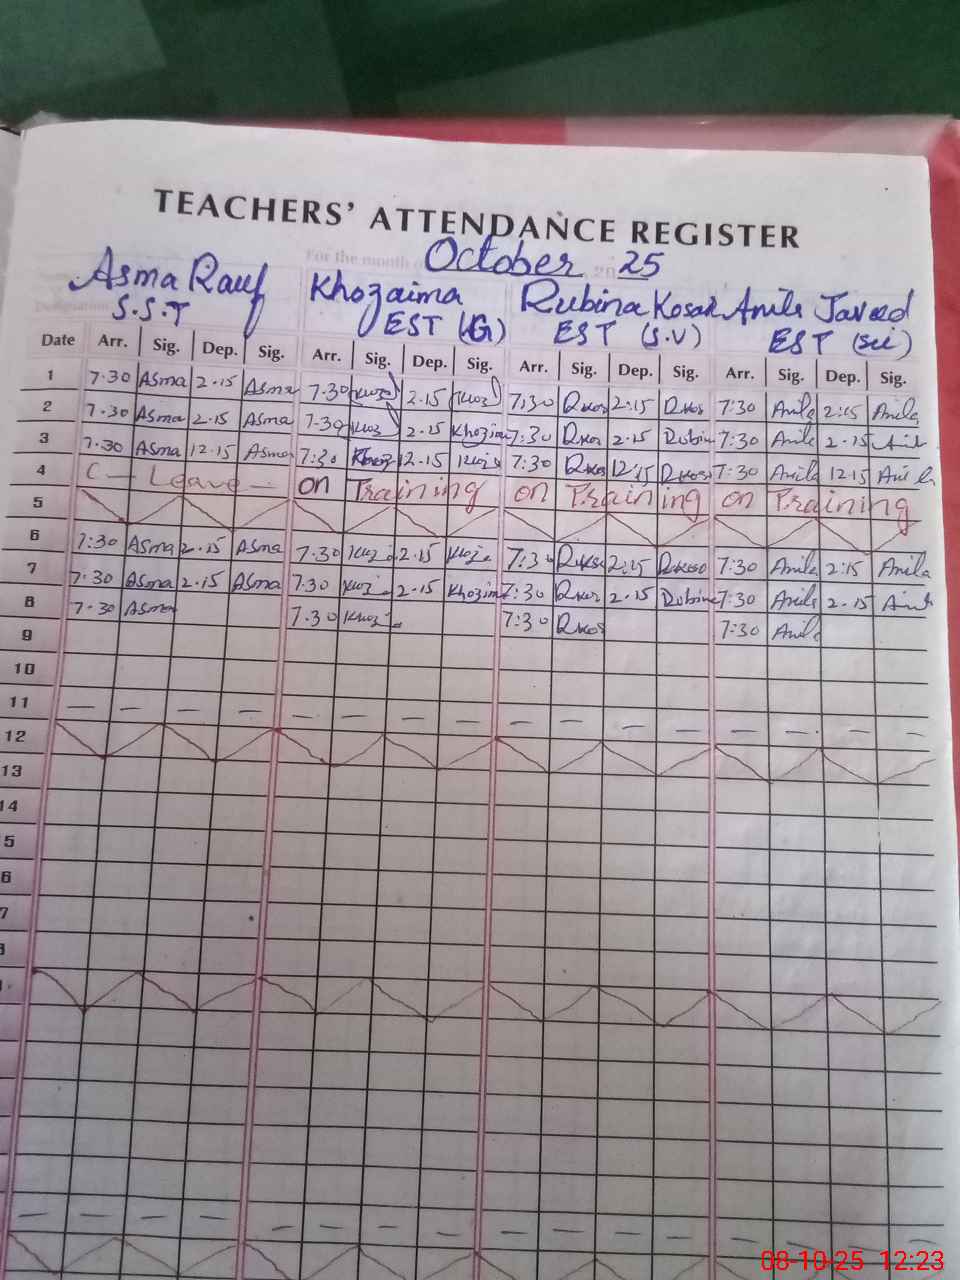 TEACHERS' ATTENDANCE REGISTER
For the month of October 2025
Asma Rauf Khozaima Rubina Kosar Anila Javed
S.S.T EST (G) EST (S.V) EST (sci)
Date Arr. Sig. Dep. Sig. Arr. Sig. Dep. Sig. Arr. Sig. Dep. Sig. Arr. Sig. Dep. Sig.
1 7.30 Asma 2.15 Asma 7.30 2.15 7:30 Rkos 2:15 Rkos 7:30 Anila 2:15 Anila
2 7.30 Asma 2.15 Asma 7.30 2.15 Khozima 7:30 Rkos 2.15 Rubina 7:30 Anila 2.15 Anila
3 7.30 Asma 12.15 Asma 7:30 12.15 7:30 Rkos 12:15 Rkos 7:30 Anila 12.15 Anila
4 C — Leave on Training on Training on Training
5
6 7:30 Asma 2.15 Asma 7.30 2.15 7:30 2:15 7:30 Anila 2:15 Anila
7 7.30 Asma 2.15 Asma 7.30 2.15 Khozima 7:30 Rkos 2.15 Rubina 7:30 Anila 2.15 Anila
8 7.30 Asma 7.30 7:30 Rkos 7:30 Anila
9
10
11 — — — — — — — — — — — — — — — —
12
13
14
5
6
7
— — — — — — — — — — — — — — — —
08-10-25 12:23